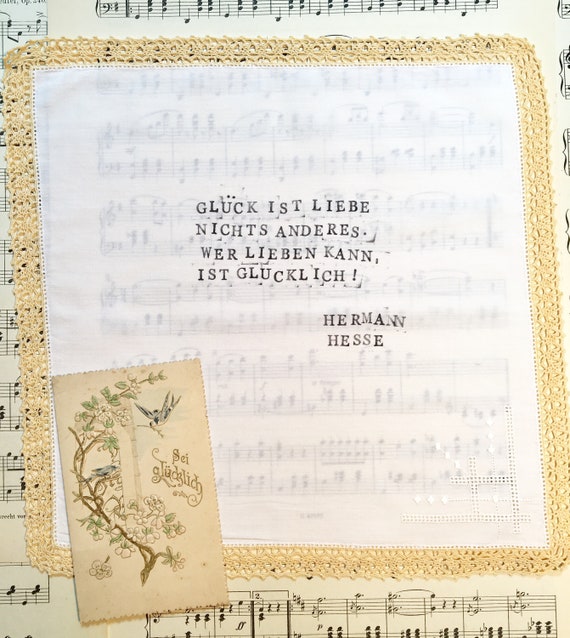 GLÜCK IST LIEBE
NICHTS ANDERES.
WER LIEBEN KANN,
IST GLÜCKLICH!
HERMANN
HESSE
Sei
glücklich